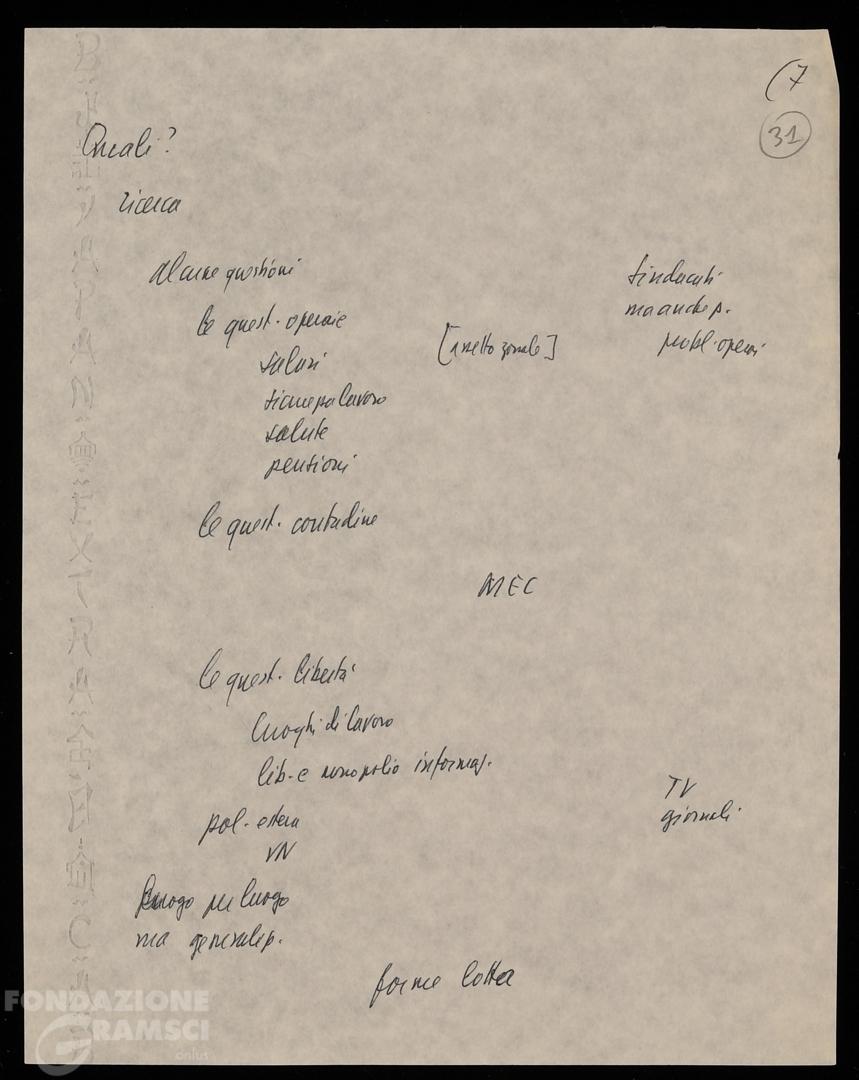 (7
31
Quali?
ricerca
alcune questioni
sindacati
ma anche p.
le quest. operaie
[assetto zonale]
probl. operai
salari
salute
pensioni
le quest. contadine
MEC
le quest. libertà
luoghi di lavoro
lib. e monopolio informaz.
TV
giornali
pol. estera
VN
luogo per luogo
ma general. p.
forme lotta
FONDAZIONE
GRAMSCI
onlus